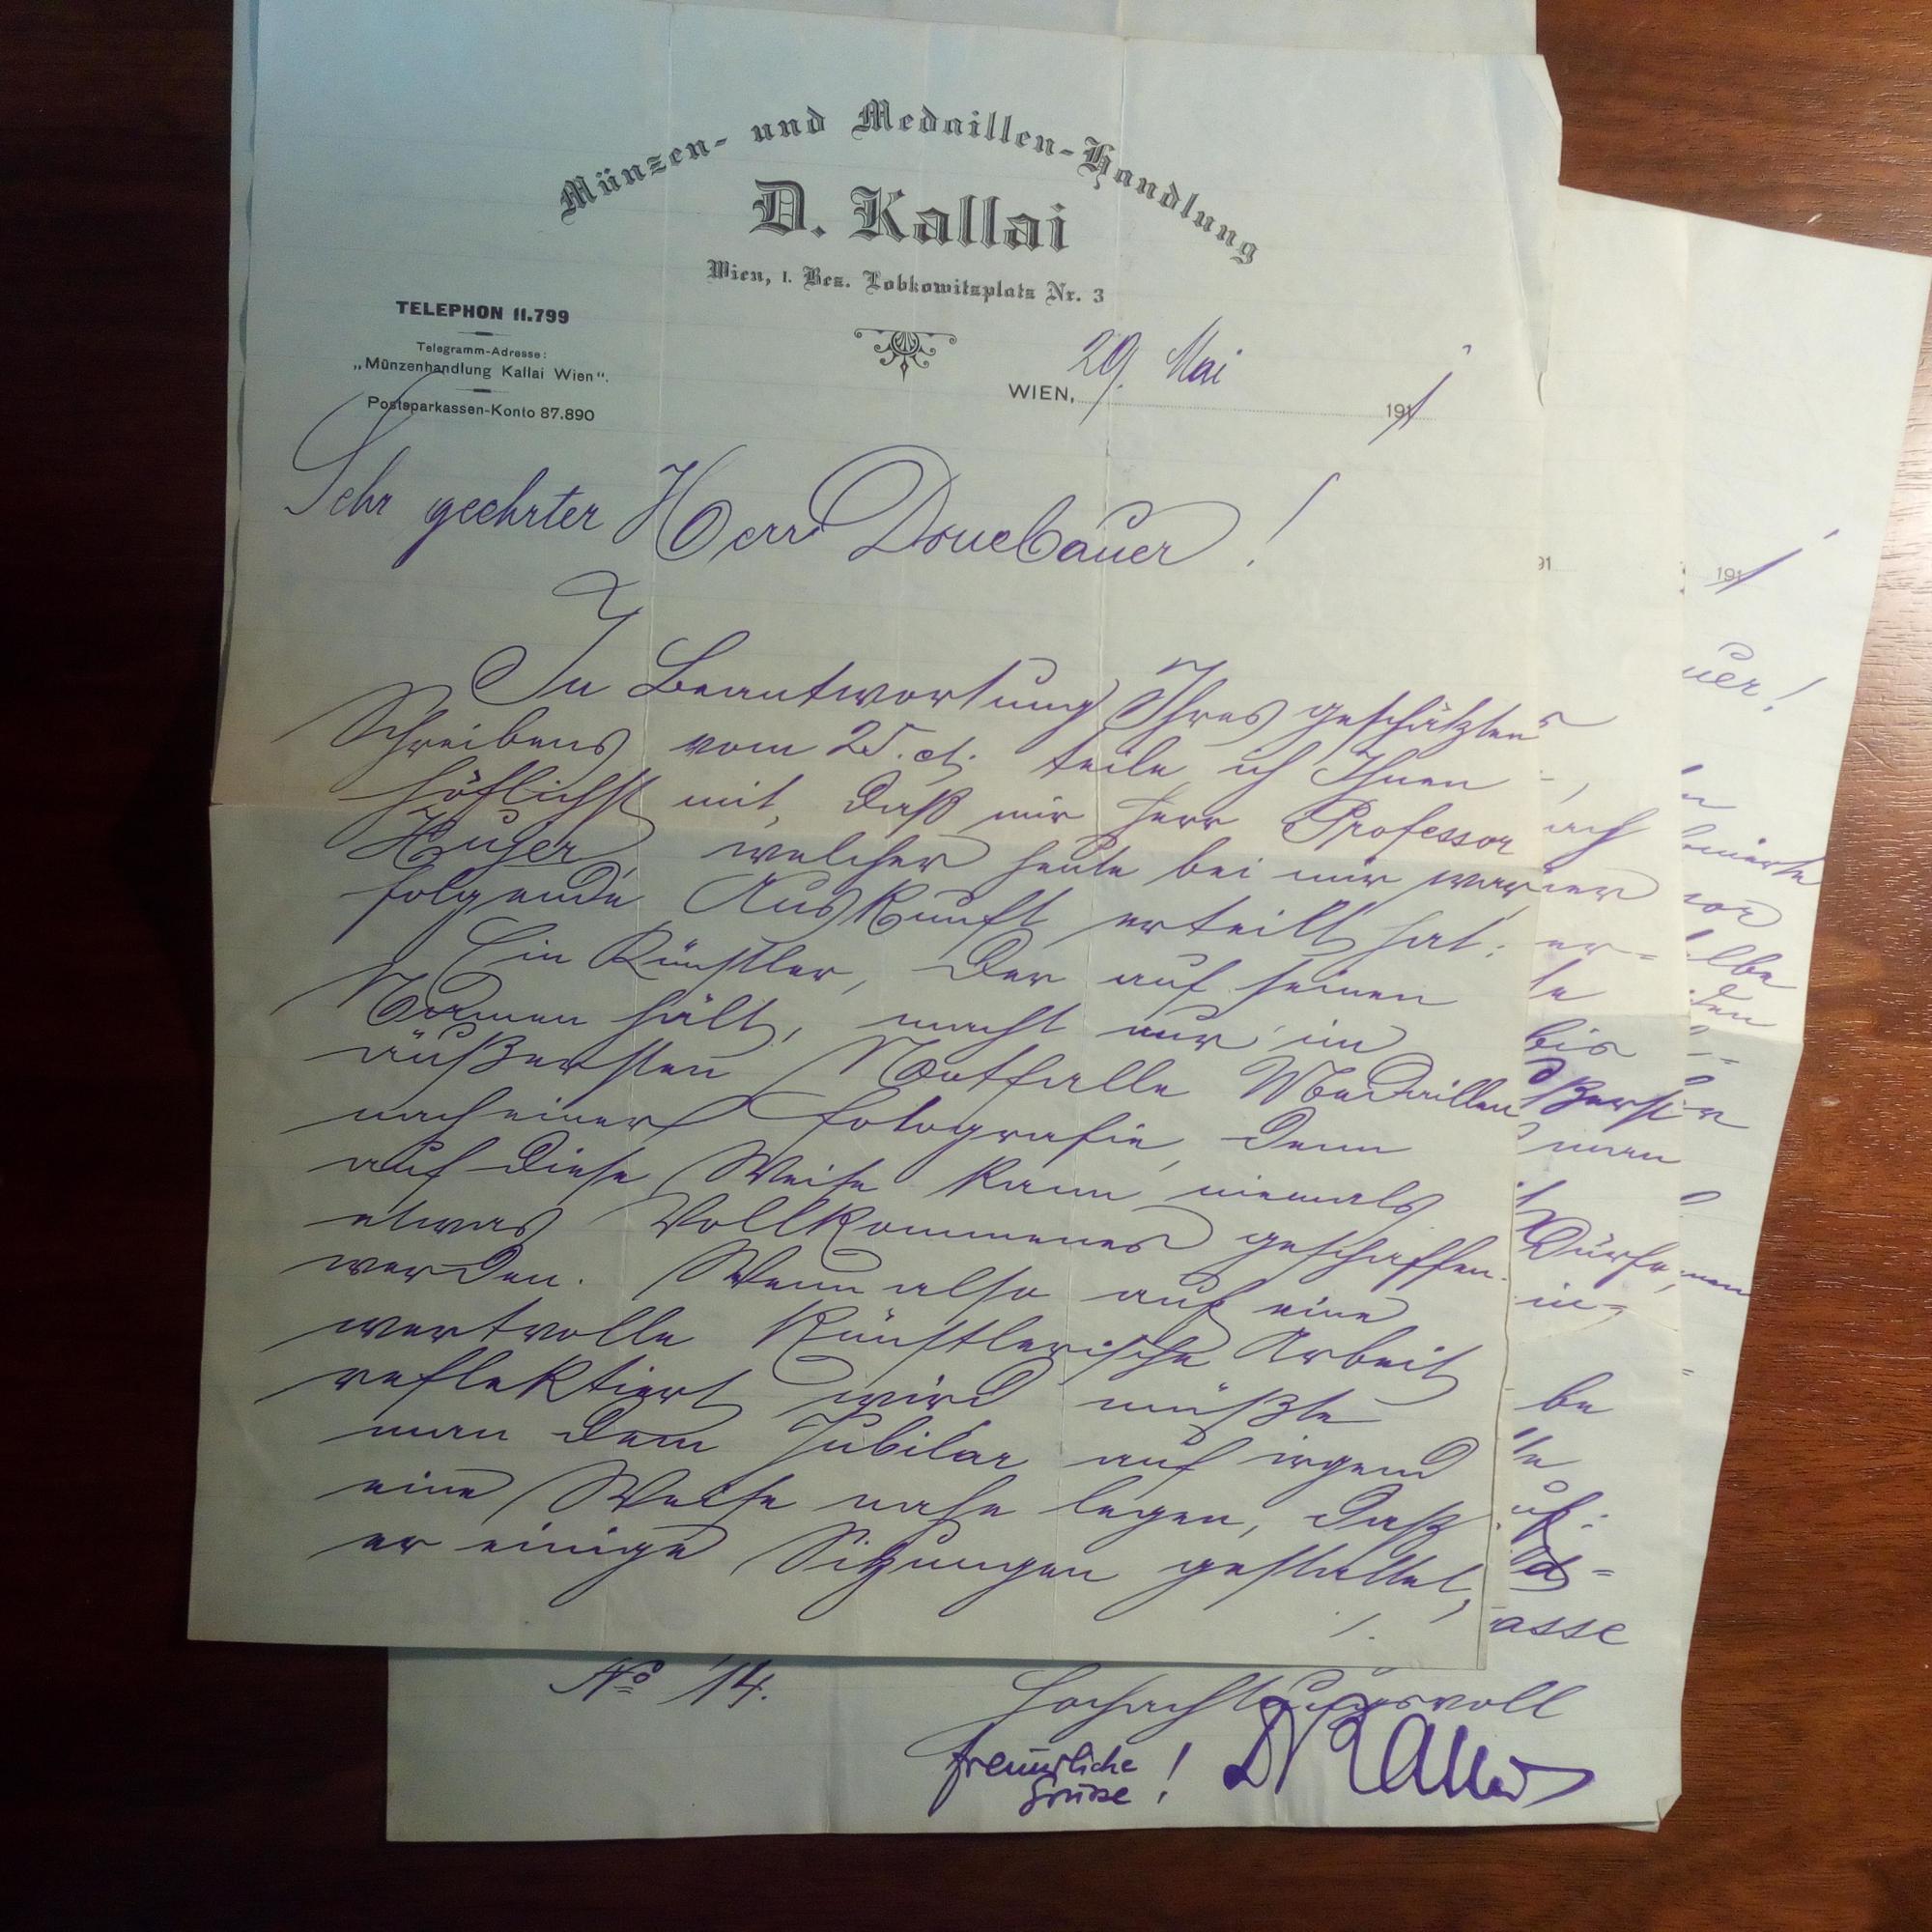 Münzen- und Medaillen-Handlung
D. Kallai
Wien, I. Bez. Lobkowitzplatz Nr. 3
TELEPHON 11.799
Telegramm-Adresse:
„Münzenhandlung Kallai Wien".
Postsparkassen-Konto 87.890
WIEN, 29. Mai 1911
Sehr geehrter Herr Donebauer!
In Beantwortung Ihres geschätzten
Schreibens vom 25. ct. teile ich Ihnen
höflichst mit, daß mir Herr Professor
Hujer welcher heute bei mir war
folgende Auskunft erteilt hat:
Ein Künstler, der auf seinen
Namen hält, macht nur im
äußersten Notfalle Medaillen
nach einer Fotografie, denn
auf diese Weise kann niemals
etwas Vollkommenes geschaffen
werden. Wenn also auf eine
wertvolle künstlerische Arbeit
reflektiert wird müßte
man dem Jubilar auf irgend
eine Weise nahe legen, daß
er einige Sitzungen gestattet,
/.
91
er=
te
bis
man
Dürfe,
in=
be
asse
No 14.
Hochachtungsvoll
freundliche
Grüsse!
DKallai
1911
uer!